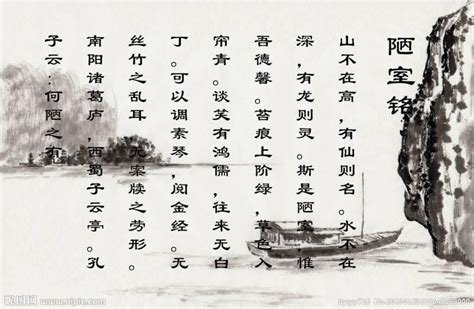 陋室铭
山不在高，有仙则名。水不在
深，有龙则灵。斯是陋室，惟
吾德馨。苔痕上阶绿，草色入
帘青。谈笑有鸿儒，往来无白
丁。可以调素琴，阅金经。无
丝竹之乱耳，无案牍之劳形。
南阳诸葛庐，西蜀子云亭。孔
子云：何陋之有
昵图网 www.nipic.com